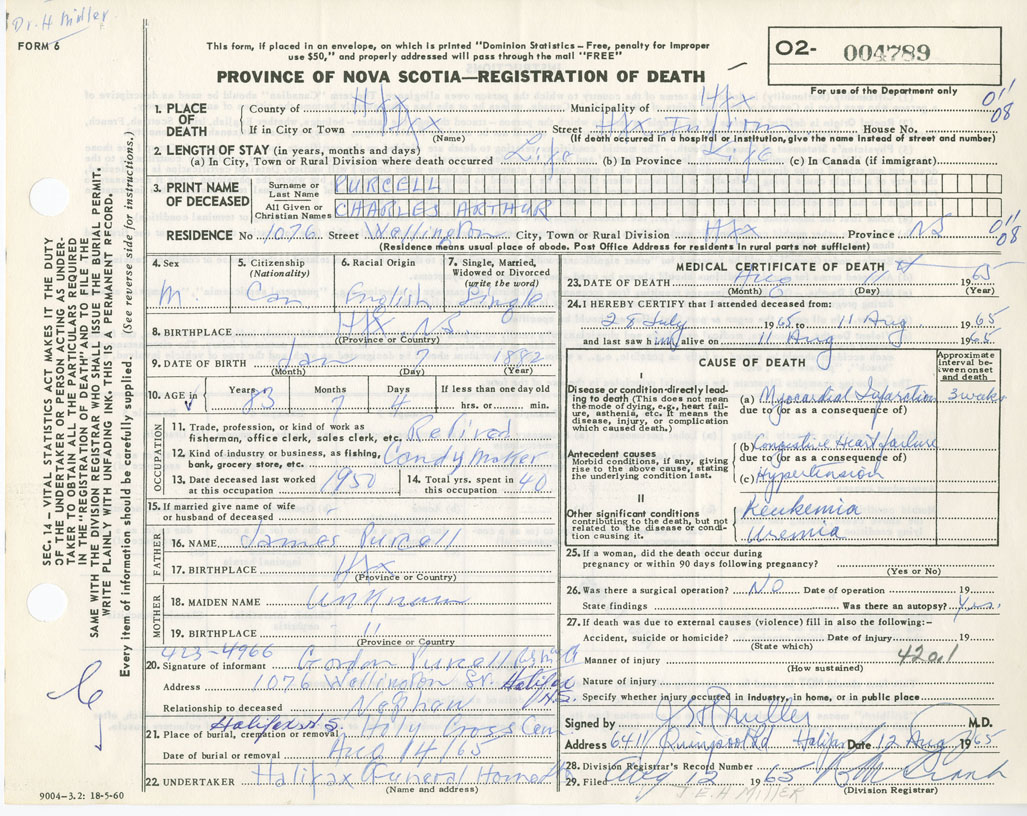 Dr. H Miller
FORM 6
This form, if placed in an envelope, on which is printed "Dominion Statistics – Free, penalty for improper
use $50," and properly addressed will pass through the mail "FREE"
PROVINCE OF NOVA SCOTIA—REGISTRATION OF DEATH
02- 004789
For use of the Department only
1. PLACE OF DEATH
County of Hfx Municipality of Hfx
If in City or Town Hfx (Name) Street Hfx Infirm House No.
(If death occurred in a hospital or institution, give the name instead of street and number)
0'' '08
2. LENGTH OF STAY (in years, months and days)
(a) In City, Town or Rural Division where death occurred Life (b) In Province Life (c) In Canada (if immigrant)
3. PRINT NAME OF DECEASED
Surname or Last Name PURCELL
All Given or Christian Names CHARLES ARTHUR
RESIDENCE No. 1076 Street Wellington City, Town or Rural Division Hfx Province NS
0'' '08
(Residence means usual place of abode. Post Office Address for residents in rural parts not sufficient)
4. Sex M
5. Citizenship (Nationality) Can
6. Racial Origin English
7. Single, Married, Widowed or Divorced (write the word) Single
8. BIRTHPLACE Hfx. NS
(Province or Country)
9. DATE OF BIRTH Jan 7 1882
(Month) (Day) (Year)
10. AGE in Years 83 Months 7 Days 4 If less than one day old hrs. or min.
OCCUPATION
11. Trade, profession, or kind of work as fisherman, office clerk, sales clerk, etc. Retired
12. Kind of industry or business, as fishing, bank, grocery store, etc. Candy maker
13. Date deceased last worked at this occupation 1950
14. Total yrs. spent in this occupation 40
15. If married give name of wife or husband of deceased -
FATHER
16. NAME James Purcell
17. BIRTHPLACE Hfx
(Province or Country)
MOTHER
18. MAIDEN NAME Unknown
19. BIRTHPLACE "
(Province or Country)
423-4966
20. Signature of informant Gordon Purcell
Address 1076 Wellington St. Halifax N.S.
Relationship to deceased Nephew
21. Place of burial, cremation or removal Halifax N.S. Holy Cross Cem
Date of burial or removal Aug 14/65
22. UNDERTAKER Halifax Funeral Home
(Name and address)
9004–3.2: 18-5-60
MEDICAL CERTIFICATE OF DEATH
23. DATE OF DEATH Aug 11th 1965
(Month) (Day) (Year)
24. I HEREBY CERTIFY that I attended deceased from:
28 July 1965 to 11 Aug 1965
and last saw him alive on 11 Aug 1965
CAUSE OF DEATH
Approximate interval between onset and death
I
Disease or condition directly leading to death (This does not mean the mode of dying, e.g., heart failure, asthenia, etc. It means the disease, injury, or complication which caused death.)
(a) Myocardial Infarction 3 weeks
due to (or as a consequence of)
Antecedent causes
Morbid conditions, if any, giving rise to the above cause, stating the underlying condition last.
(b) Congestive Heart failure
due to (or as a consequence of)
(c) Hypertension
II
Other significant conditions contributing to the death, but not related to the disease or condition causing it.
Leukemia
Uremia
25. If a woman, did the death occur during pregnancy or within 90 days following pregnancy?
(Yes or No)
26. Was there a surgical operation? NO Date of operation 19
State findings Was there an autopsy? Yes.
27. If death was due to external causes (violence) fill in also the following:–
Accident, suicide or homicide? Date of injury 19
(State which)
Manner of injury 420.1
(How sustained)
Nature of injury
Specify whether injury occurred in industry, in home, or in public place
Signed by Miller M.D.
Address 6411 Quinpool Rd Halifax Date 12 Aug 1965
28. Division Registrar's Record Number
29. Filed Aug 12 1965
(Division Registrar)
J E H MILLER
SEC. 14 – VITAL STATISTICS ACT MAKES IT THE DUTY
OF THE UNDERTAKER OR PERSON ACTING AS UNDER-
TAKER TO OBTAIN ALL THE PARTICULARS REQUIRED
IN THE "REGISTRATION OF DEATH" AND TO FILE THE
SAME WITH THE DIVISION REGISTRAR WHO SHALL ISSUE THE BURIAL PERMIT.
WRITE PLAINLY WITH UNFADING INK. THIS IS A PERMANENT RECORD.
Every item of information should be carefully supplied. (See reverse side for instructions.)